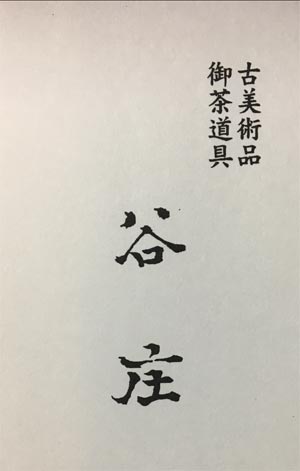 古美術品
御茶道具
谷庄